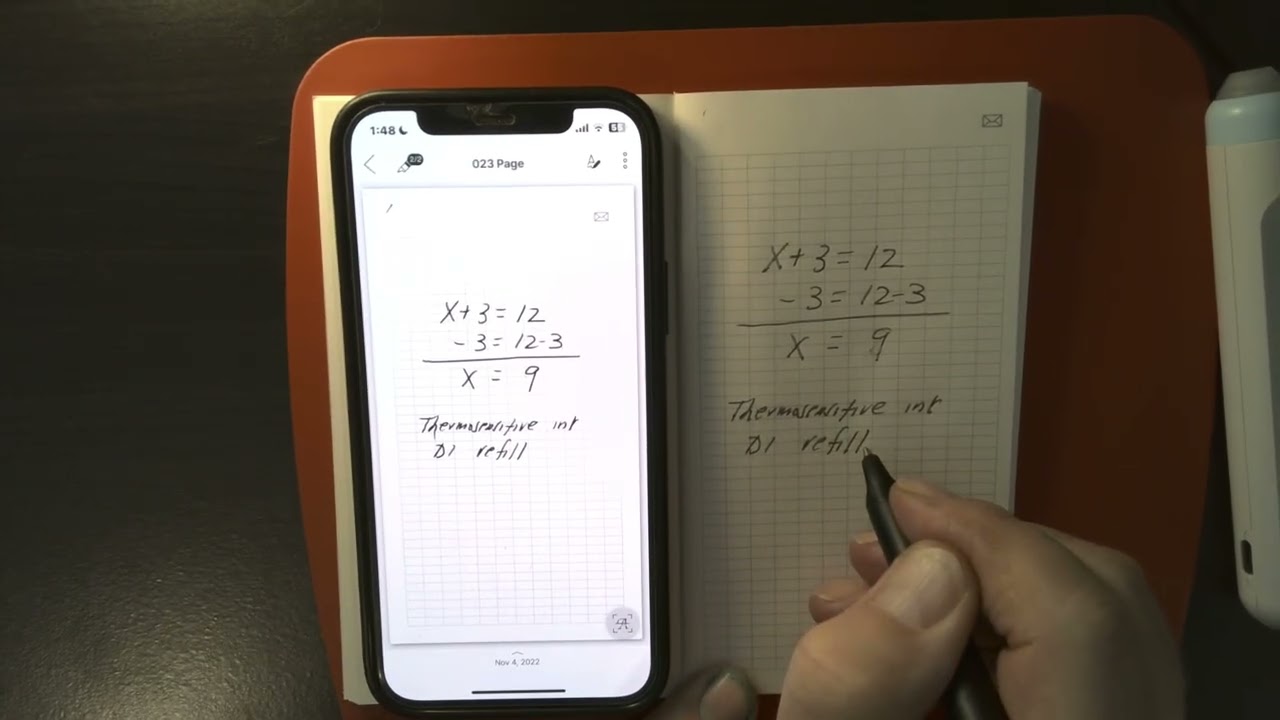 1:48
2/2
023 Page
X+3=12
-3=12-3
X = 9
Thermosensitive int
D1 refill
Nov 4, 2022
X+3=12
-3=12-3
X = 9
Thermosensitive int
D1 refill